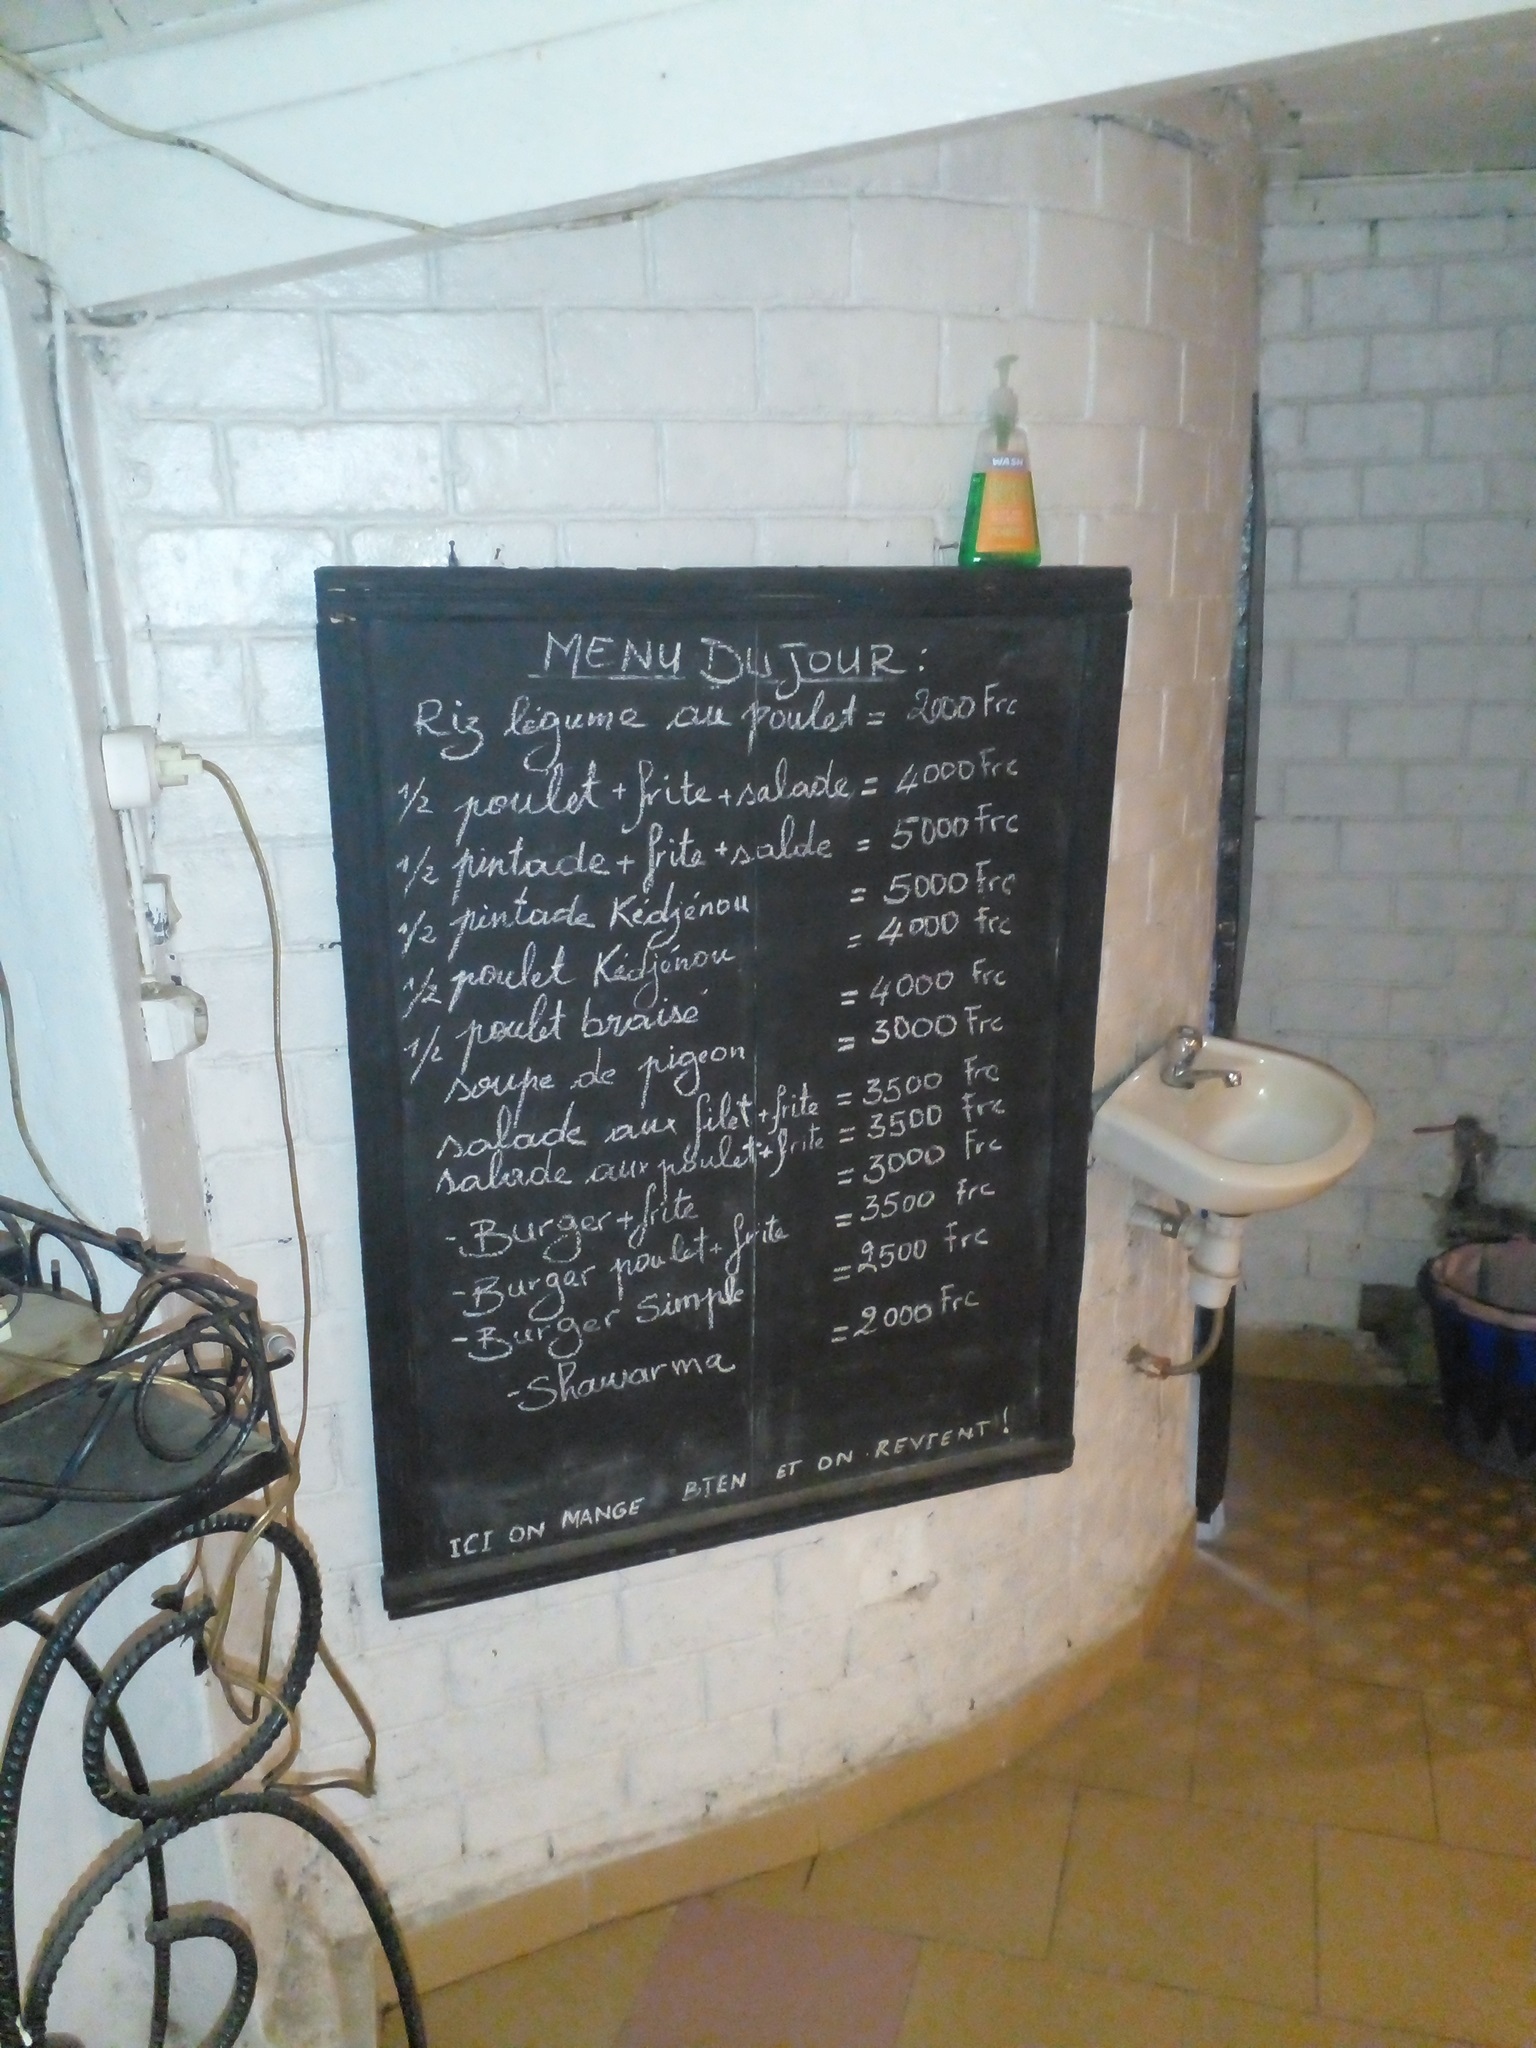 WASH
MENU DU JOUR :
Riz légume au poulet = 2000 Frc
1/2 poulet + frite + salade = 4000 Frc
1/2 pintade + frite + salde = 5000 Frc
1/2 pintade Kédjénou = 5000 Frc
1/2 poulet Kédjénou = 4000 Frc
1/2 poulet braisé = 4000 Frc
soupe de pigeon = 3000 Frc
salade aux filet + frite = 3500 Frc
salade aux poulet + frite = 3500 Frc
- Burger + frite = 3000 Frc
- Burger poulet + frite = 3500 Frc
- Burger Simple = 2500 Frc
- Shawarma = 2000 Frc
ICI ON MANGE BIEN ET ON REVIENT !